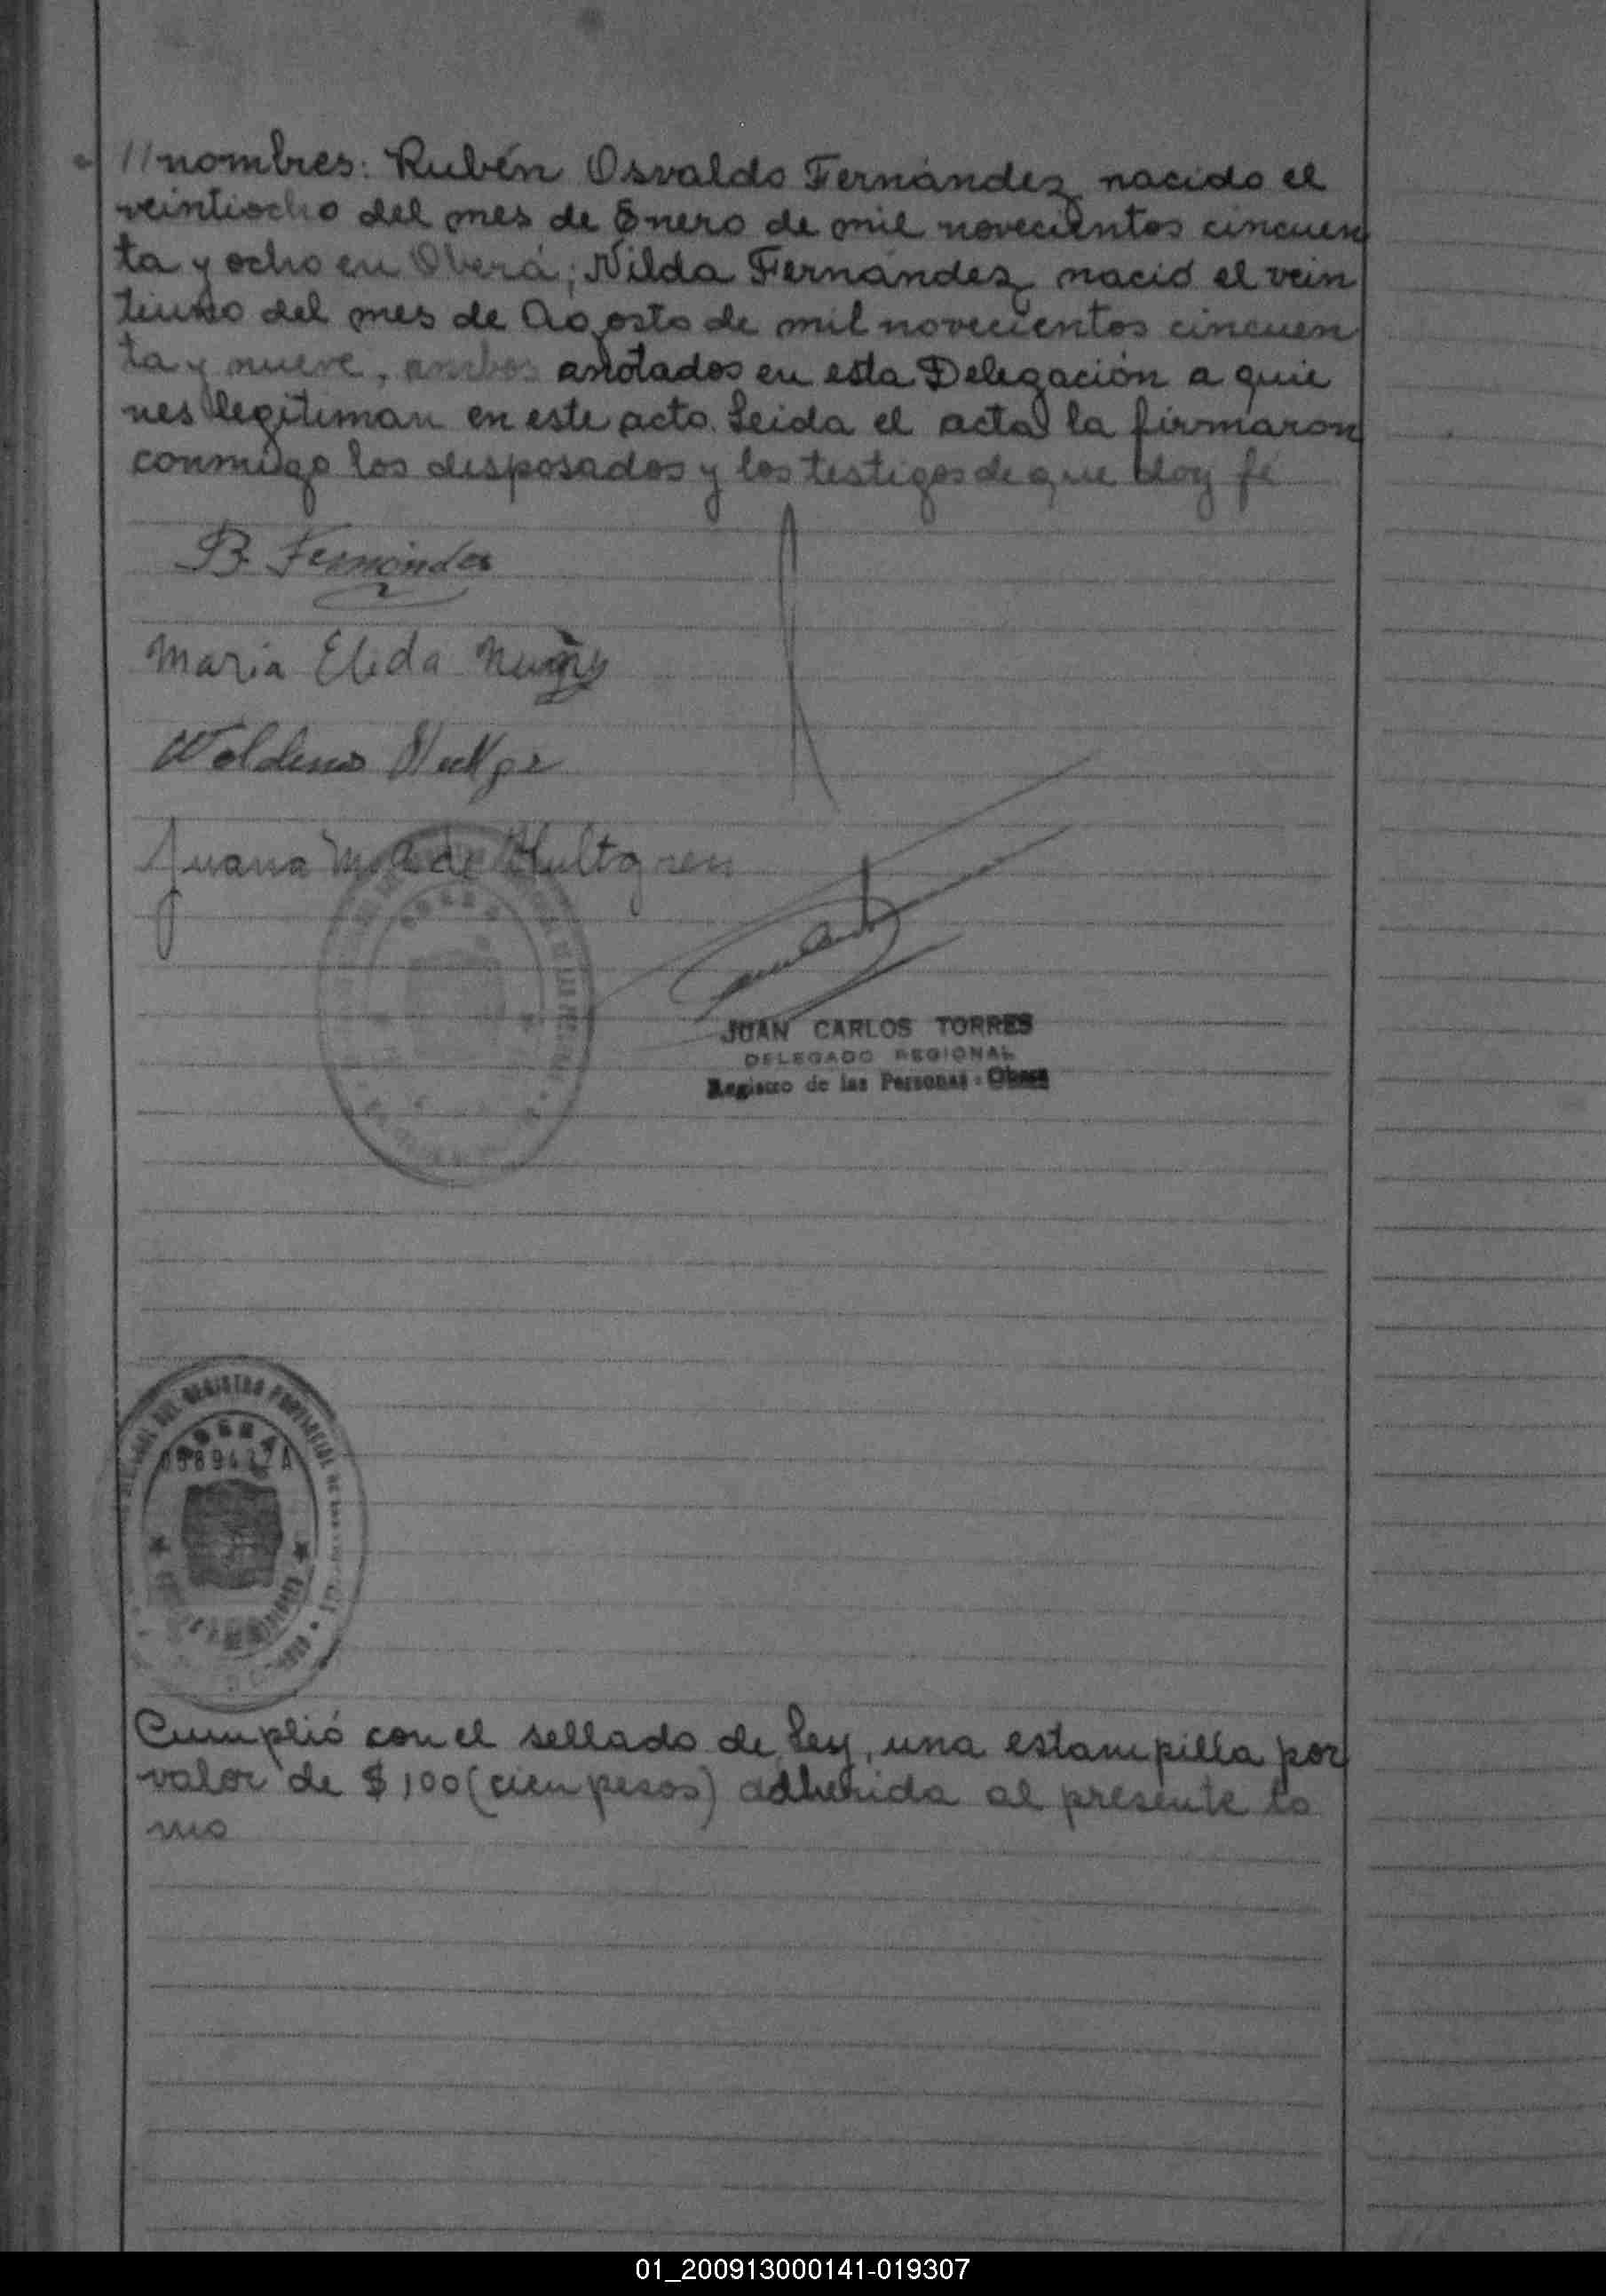 //nombres: Rubén Osvaldo Fernández nacido el
veintiocho del mes de Enero de mil novecientos cincuen
ta y ocho en Oberá; Nilda Fernández nació el vein
tiuno del mes de Agosto de mil novecientos cincuen
ta y nueve, ambos anotados en esta Delegación a quie
nes legitiman en este acto. Leida el acta la firmaron
conmigo los desposados y los testigos de que doy fé
B. Fernández
Maria Elida Nuñez
Juana M. de Hultgren
JUAN CARLOS TORRES
DELEGADO REGIONAL
Registro de las Personas - Obera
DEL REGISTRO PROVINCIAL DE
OBERA
Cumplió con el sellado de Ley, una estampilla por
valor de $ 100 (cien pesos) adherida al presente to
mo
01_200913000141-019307